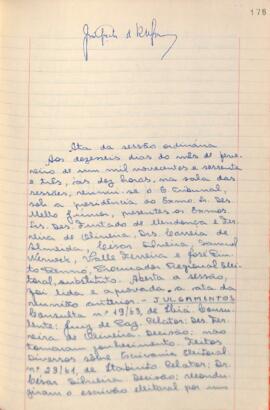 178
Ata da sessão ordinária
Aos dezesseis dias do mês de janeiro
neiro de um mil novecentos e sessenta
e três, às dez horas, na sala das
sessões, reuniu-se o E. Tribunal,
sob a presidência do Exmo. Sr. Des.
Mello Júnior, presentes os Exmos.
Srs. Drs. Furtado de Mendonça e Fer-
reira de Oliveira, Drs. Correia de
Almeida, Cesar Silveira, Samuel
Werneck, Valle Ferreira e José
Penno, Procurador Regional Elei-
toral, substituto. Aberta a sessão,
foi lida e aprovada, a ata da
reunião anterior. - JULGAMENTOS
Consulta nº 19/63, de Ibiá Consu-
lente: Juiz de Paz. Relator: Des. Fer-
reira de Oliveira. Decisão: não
tomaram conhecimento. Feitos
Diversos sobre Escrivania Eleitoral
nº 29/61, de Itabirito Relator: Dr.
Cesar Silveira Decisão: Recondu-
ziram o escrivão eleitoral por um